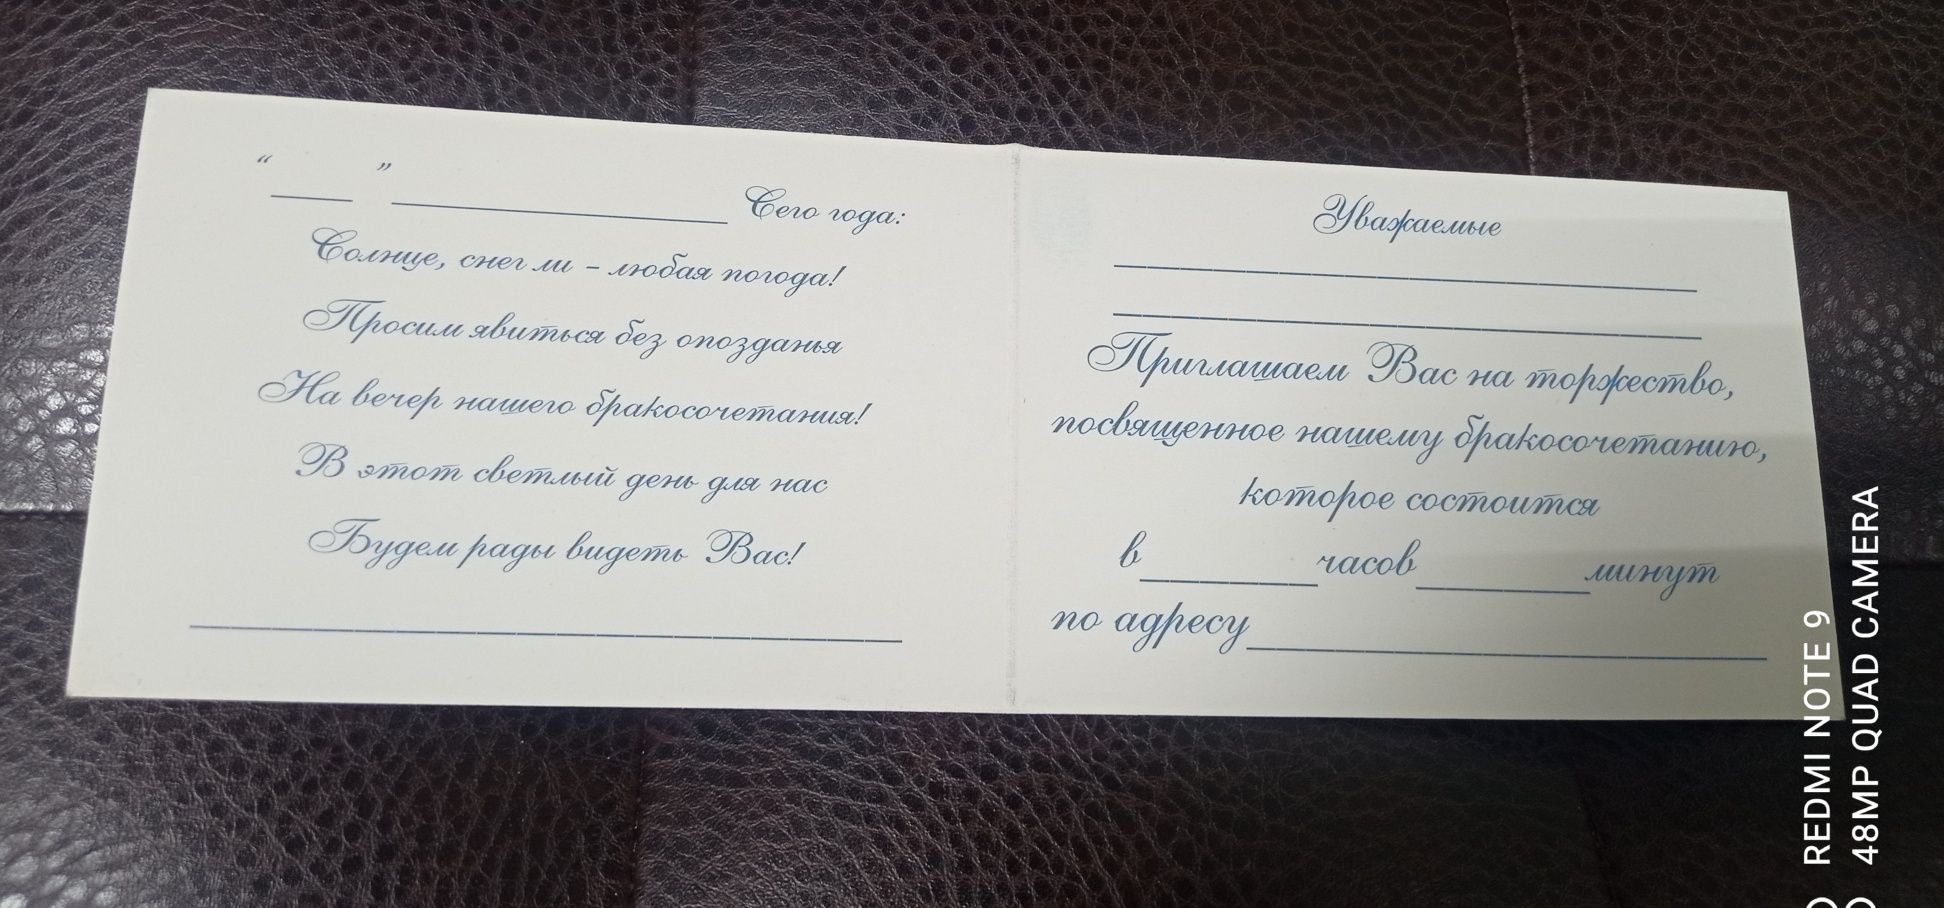 “ ” Сего года:
Солнце, снег ли - любая погода!
Просим явиться без опозданья
На вечер нашего бракосочетания!
В этот светлый день для нас
Будем рады видеть Вас!
Уважаемые
Приглашаем Вас на торжество,
посвященное нашему бракосочетанию,
которое состоится
в часов минут
по адресу
REDMI NOTE 9
48MP QUAD CAMERA